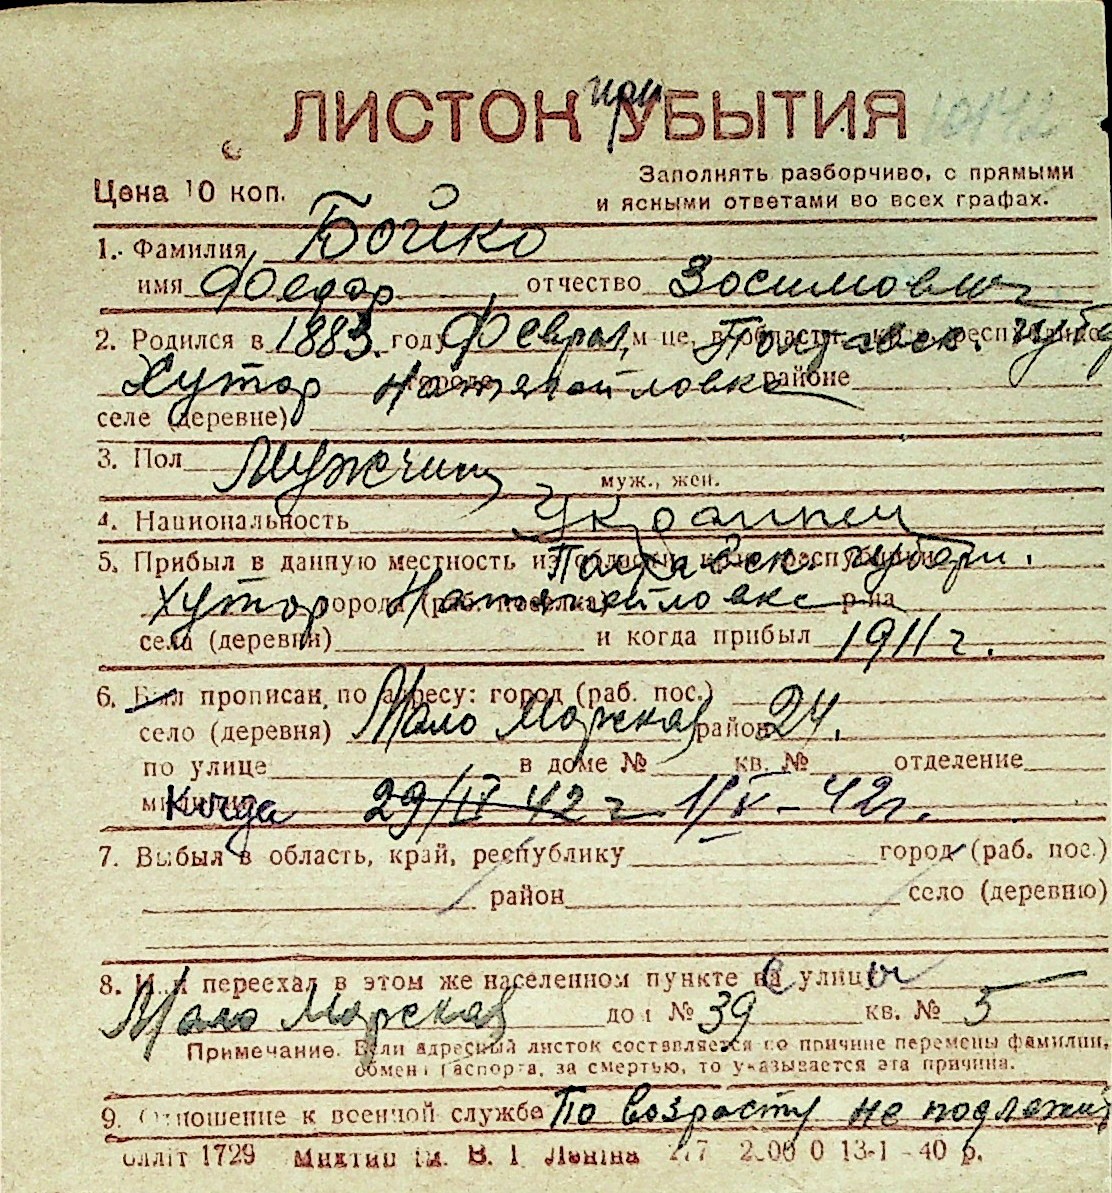 ЛИСТОК при УБЫТИЯ 10142
Цена 10 коп.
Заполнять разборчиво, с прямыми
и ясными ответами во всех графах.
1. Фамилия Бойко
имя Федор отчество Зосимович
2. Родился в 1883. году Феврал, м-це, в области, Полтавск. губ
Хутор городе районе
селе (деревне)
3. Пол Мужчин
муж., жен.
4. Национальность Украинец
5. Прибыл в данную местность из Полтавск. губерн.
Хутор города (раб. поселка) р-на
села (деревни) и когда прибыл 1911 г.
6. Был прописан, по адресу: город (раб. пос.)
село (деревня) Мало Морская район 24.
по улице в доме № кв. № отделение
Когда 29/IV 42 г 1/V - 42 г.
7. Выбыл в область, край, республику город (раб. пос.)
район село (деревню)
8. переехал в этом же населенном пункте с улицы
Мало Морская дом № 39 кв. № 5
Примечание. Если адресный листок составляется по причине перемены фамилии,
обмена паспорта, за смертью, то указывается эта причина.
9. Отношение к военной службе По возрасту не подлежит
1729 ім. В. І. Леніна 13-1 - 40 р.